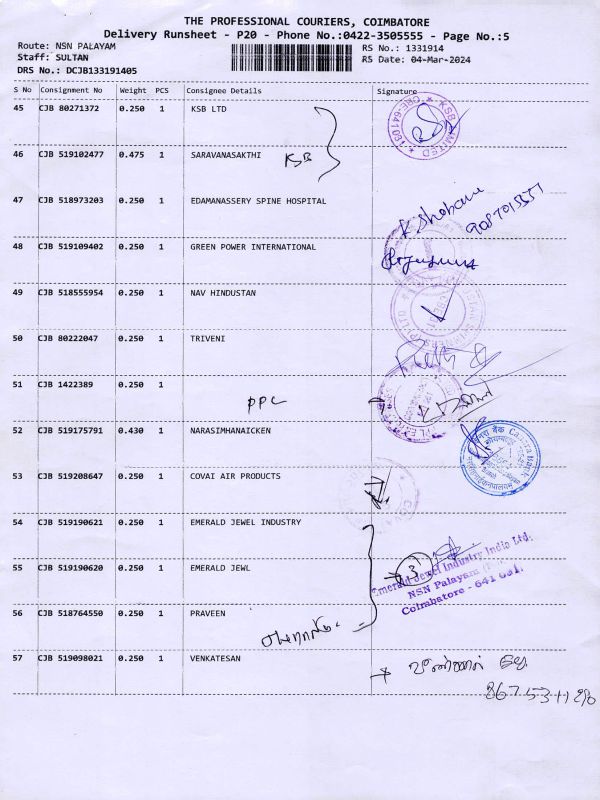 THE PROFESSIONAL COURIERS, COIMBATORE
Delivery Runsheet - P20 - Phone No.:0422-3505555 - Page No.:5
Route: NSN PALAYAM RS No.: 1331914
Staff: SULTAN RS Date: 04-Mar-2024
DRS No.: DCJB133191405
S No Consignment No Weight PCS Consignee Details Signature
45 CJB 80271372 0.250 1 KSB LTD
46 CJB 519102477 0.475 1 SARAVANASAKTHI KSB
47 CJB 518973203 0.250 1 EDAMANASSERY SPINE HOSPITAL
K Shobana
48 CJB 519109402 0.250 1 GREEN POWER INTERNATIONAL
49 CJB 518555954 0.250 1 NAV HINDUSTAN
50 CJB 80222047 0.250 1 TRIVENI
51 CJB 1422389 0.250 1
PPC
52 CJB 519175791 0.430 1 NARASIMHANAICKEN
Canara Bank
53 CJB 519208647 0.250 1 COVAI AIR PRODUCTS
54 CJB 519190621 0.250 1 EMERALD JEWEL INDUSTRY
55 CJB 519190620 0.250 1 EMERALD JEWL
3
Emerald Jewel Industry India Ltd.
NSN Palayam
Coimbatore - 641 031.
56 CJB 518764550 0.250 1 PRAVEEN
57 CJB 519098021 0.250 1 VENKATESAN